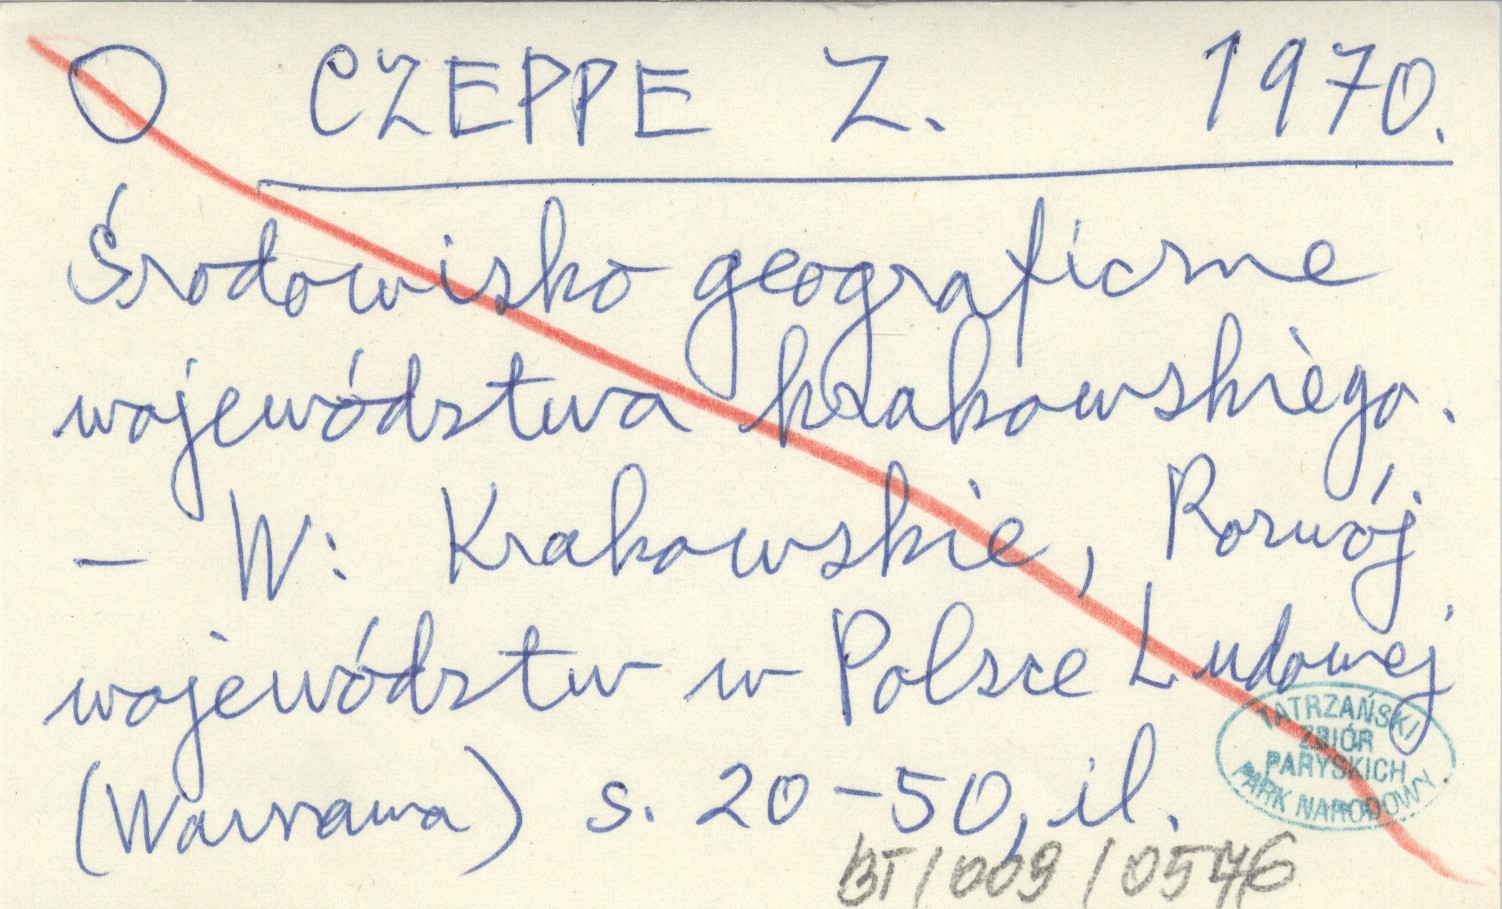 O CZEPPE Z. 1970.
Środowisko geograficzne
województwa krakowskiego.
— W: Krakowskie, Rozwój
województw w Polsce Ludowej
(Warszawa) s. 20–50, il.
TATRZAŃSKI
ZBIÓR
PARYSKICH
PARK NARODOWY
BT/009/0546